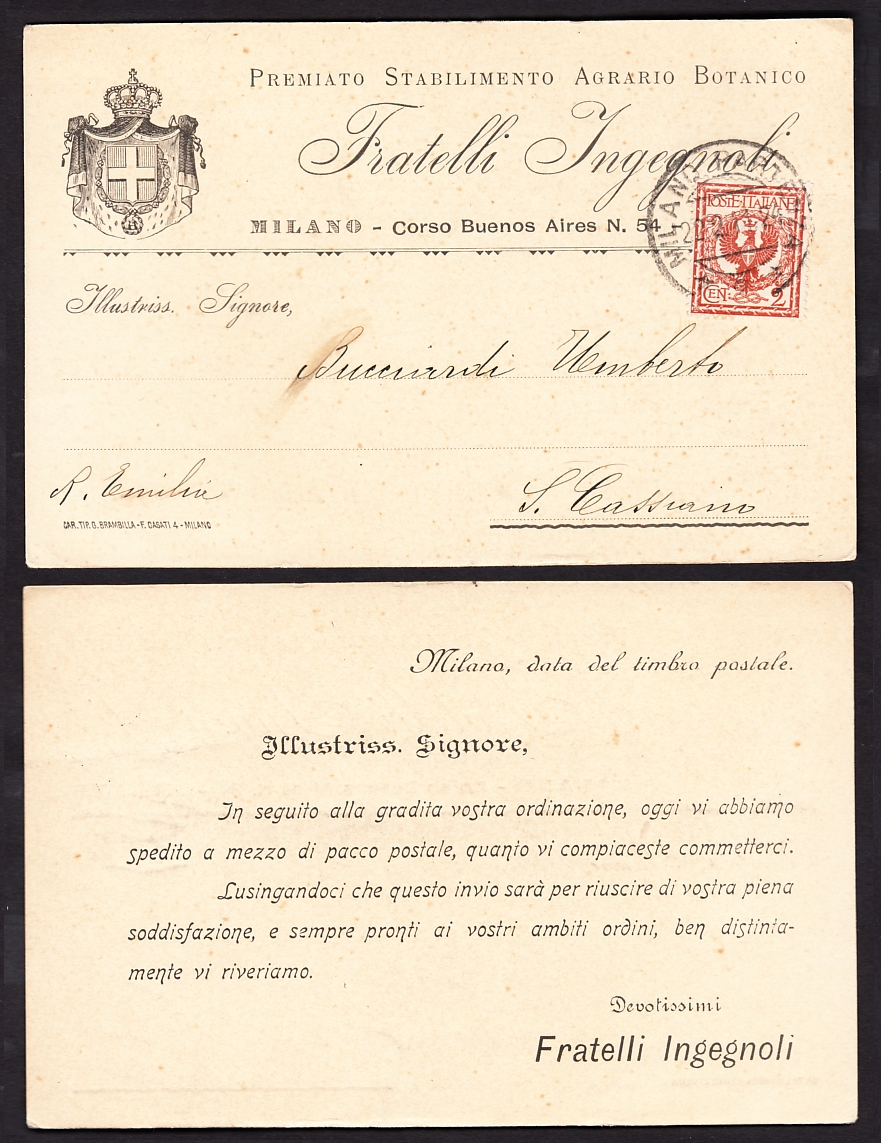 PREMIATO STABILIMENTO AGRARIO BOTANICO
Fratelli Ingegnoli
MILANO - Corso Buenos Aires N. 54
POSTE·ITALIANE
CEN. 2
MILANO PARTENZA
Illustriss. Signore,
Bucciardi Umberto
R. Emilia
S. Cassiano
CAR. TIP. G. BRAMBILLA - F. CASATI 4 - MILANO
Milano, data del timbro postale.
Illustriss. Signore,
In seguito alla gradita vostra ordinazione, oggi vi abbiamo
spedito a mezzo di pacco postale, quanto vi compiaceste commetterci.
Lusingandoci che questo invio sarà per riuscire di vostra piena
soddisfazione, e sempre pronti ai vostri ambiti ordini, ben distinta-
mente vi riveriamo.
Devotissimi
Fratelli Ingegnoli